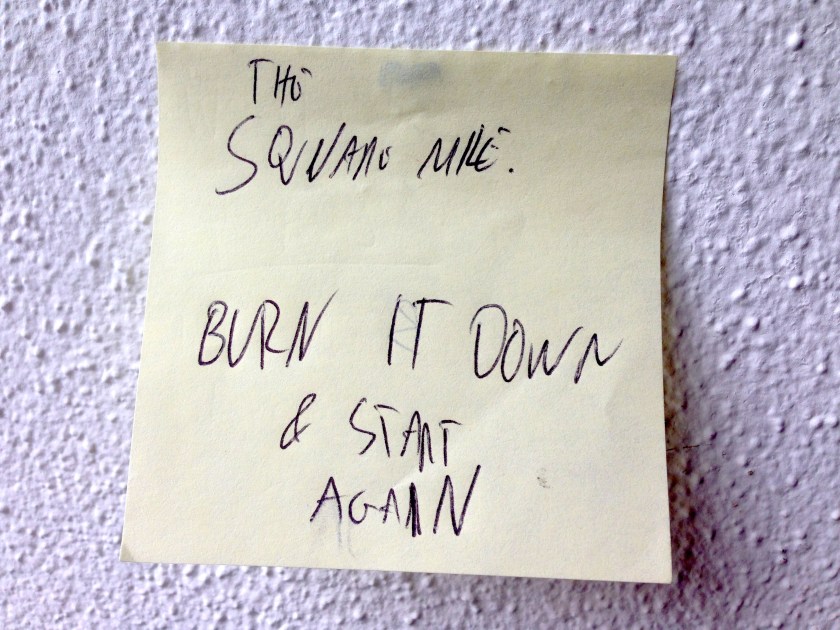 THE
SQUARE MILE.
BURN IT DOWN
& START
AGAIN